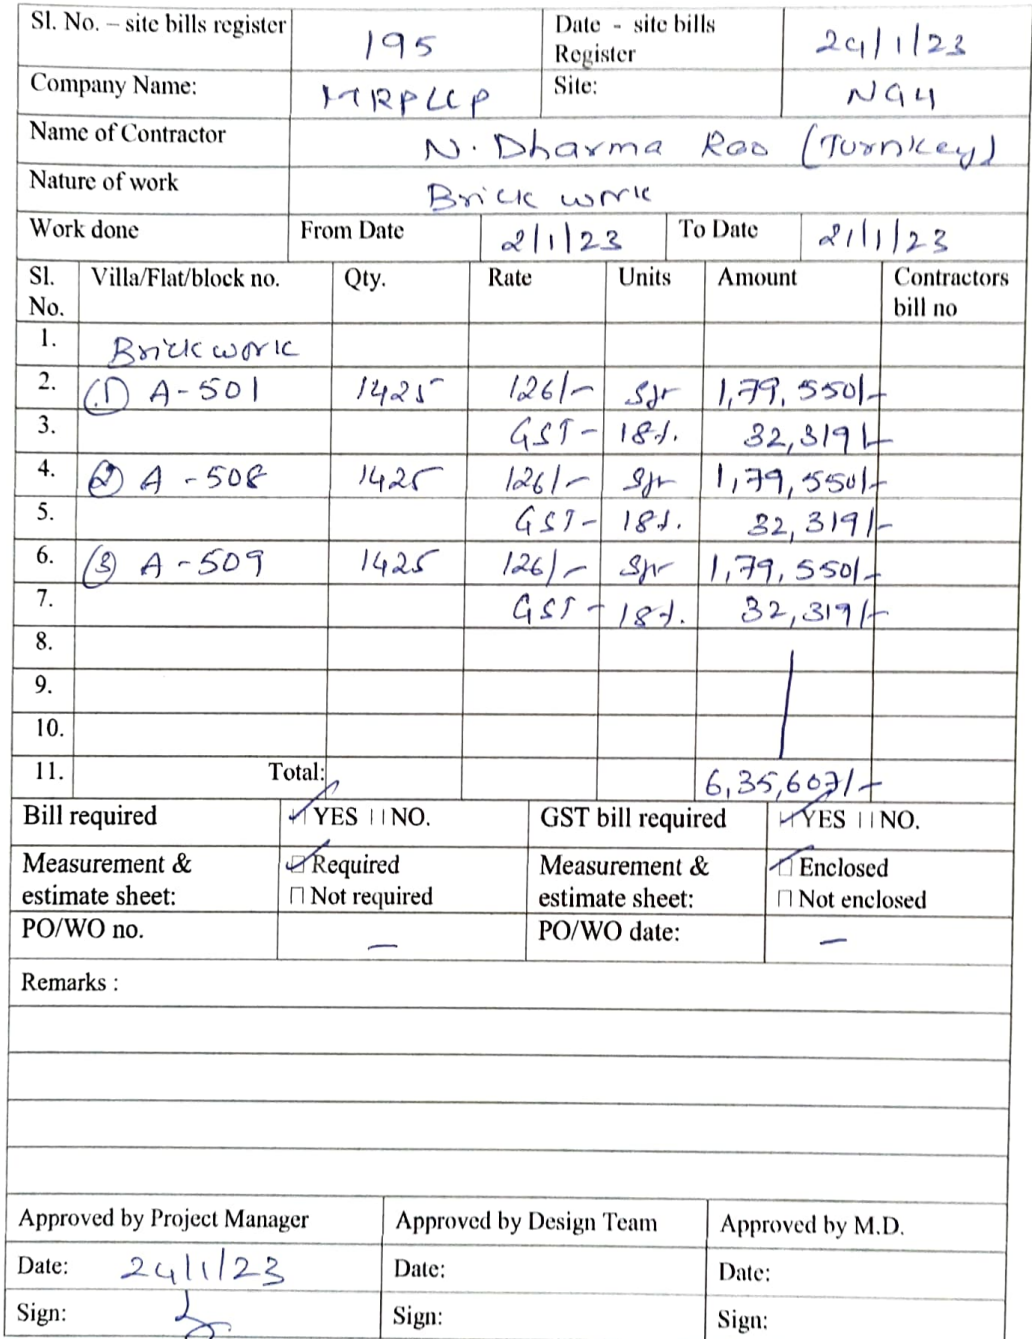 Sl. No. – site bills register 195 Date - site bills Register 24/1/23
Company Name: MRPLLP Site: NG4
Name of Contractor N. Dharma Rao (Turnkey)
Nature of work Brick work
Work done From Date 2/1/23 To Date 21/1/23
Sl. No. Villa/Flat/block no. Qty. Rate Units Amount Contractors bill no
1. Brick work
2. (1) A-501 1425 126/- Sft 1,79,550/-
3. GST- 18%. 32,319/-
4. (2) A-508 1425 126/- Sft 1,79,550/-
5. GST- 18%. 32,319/-
6. (3) A-509 1425 126/- Sft 1,79,550/-
7. GST- 18%. 32,319/-
8.
9.
10.
11. Total: 6,35,607/-
Bill required YES NO. GST bill required YES NO.
Measurement & estimate sheet: Required Measurement & estimate sheet: Enclosed
Not required Not enclosed
PO/WO no. – PO/WO date: –
Remarks :
Approved by Project Manager Approved by Design Team Approved by M.D.
Date: 24/1/23 Date: Date:
Sign: Sign: Sign: